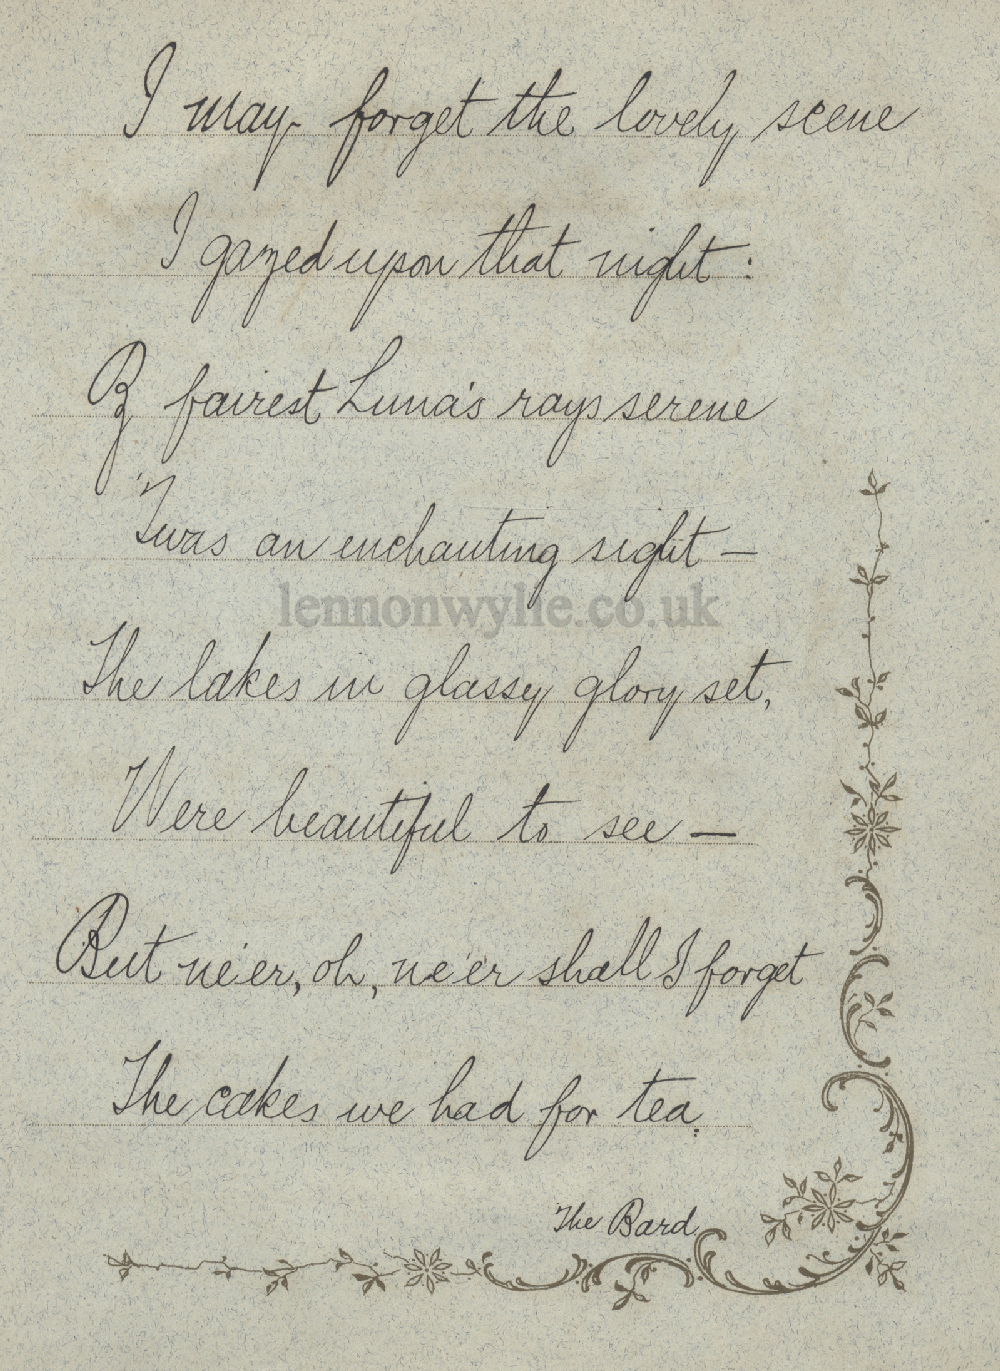 I may forget the lovely scene
I gazed upon that night :
By fairest Luna's rays serene
'Twas an enchanting sight —
lennonwylie.co.uk
The lakes in glassy glory set,
Were beautiful to see —
But ne'er, oh, ne'er shall I forget
The cakes we had for tea.
The Bard.